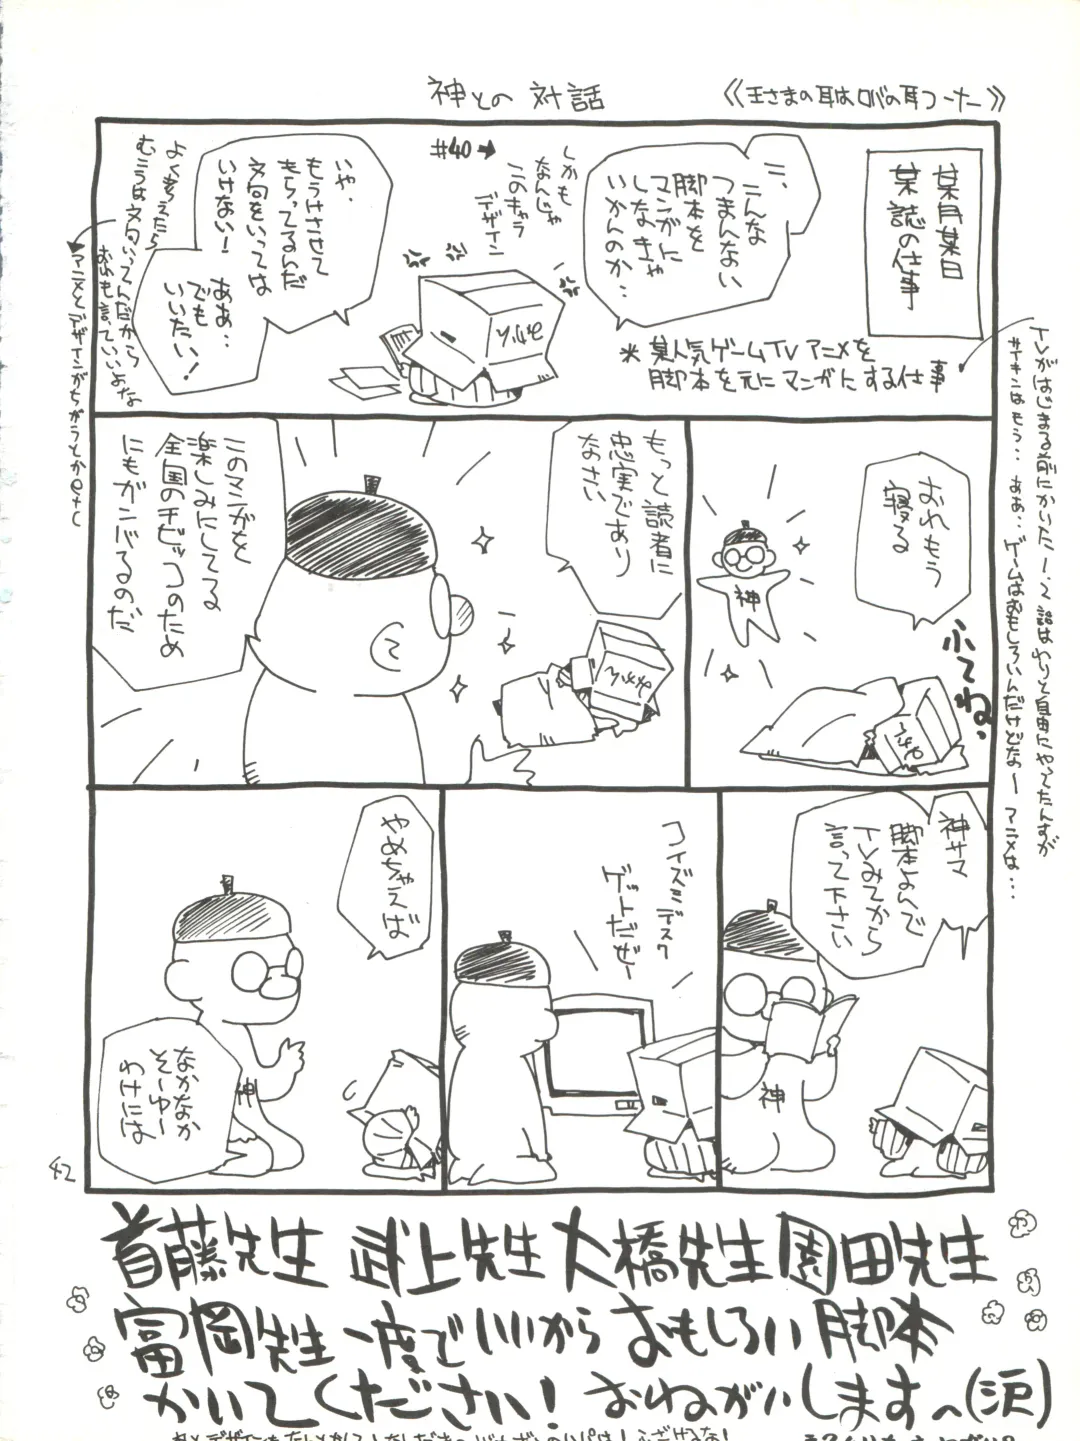 神との対話
《王さまの耳はロバの耳コーナー》
某月某日
某誌の仕事
こ、こんな
つまんない
脚本を
マンガに
しなきゃ
いかんのか…
＊某人気ゲームTVアニメを
脚本を元にマンガにする仕事
しかも
なんじゃ
このキャラ
デザイン
#40→
いや、
もうけさせて
もらってるんだ
文句をいっては
いけない！
ああ…
でも
いいたい！
よく考えたら
むこうは文句いってんだから
おれも言っていいよな
アニメとデザインがちがうとかetc
TVがはじまる前にかいた1〜2話はわりと自由にやってたんすが
サイキンはもう…ああ…ゲームはおもしろいんだけどなー アニメは…
おれもう
寝る
ふてね。
神
もっと読者に
忠実であり
なさい
このマンガを
楽しみにしてる
全国のチビッコのため
にもガンバるのだ
神サマ
脚本よんで
TVみてから
言って下さい
神
コイズミデスク
ゲットだぜー
やめちゃえば
なかなか
そーゆー
わけには
神
42
首藤先生 武上先生 大橋先生 園田先生
富岡先生 一度でいいから おもしろい脚本
かいてください！おねがいします。(沢)